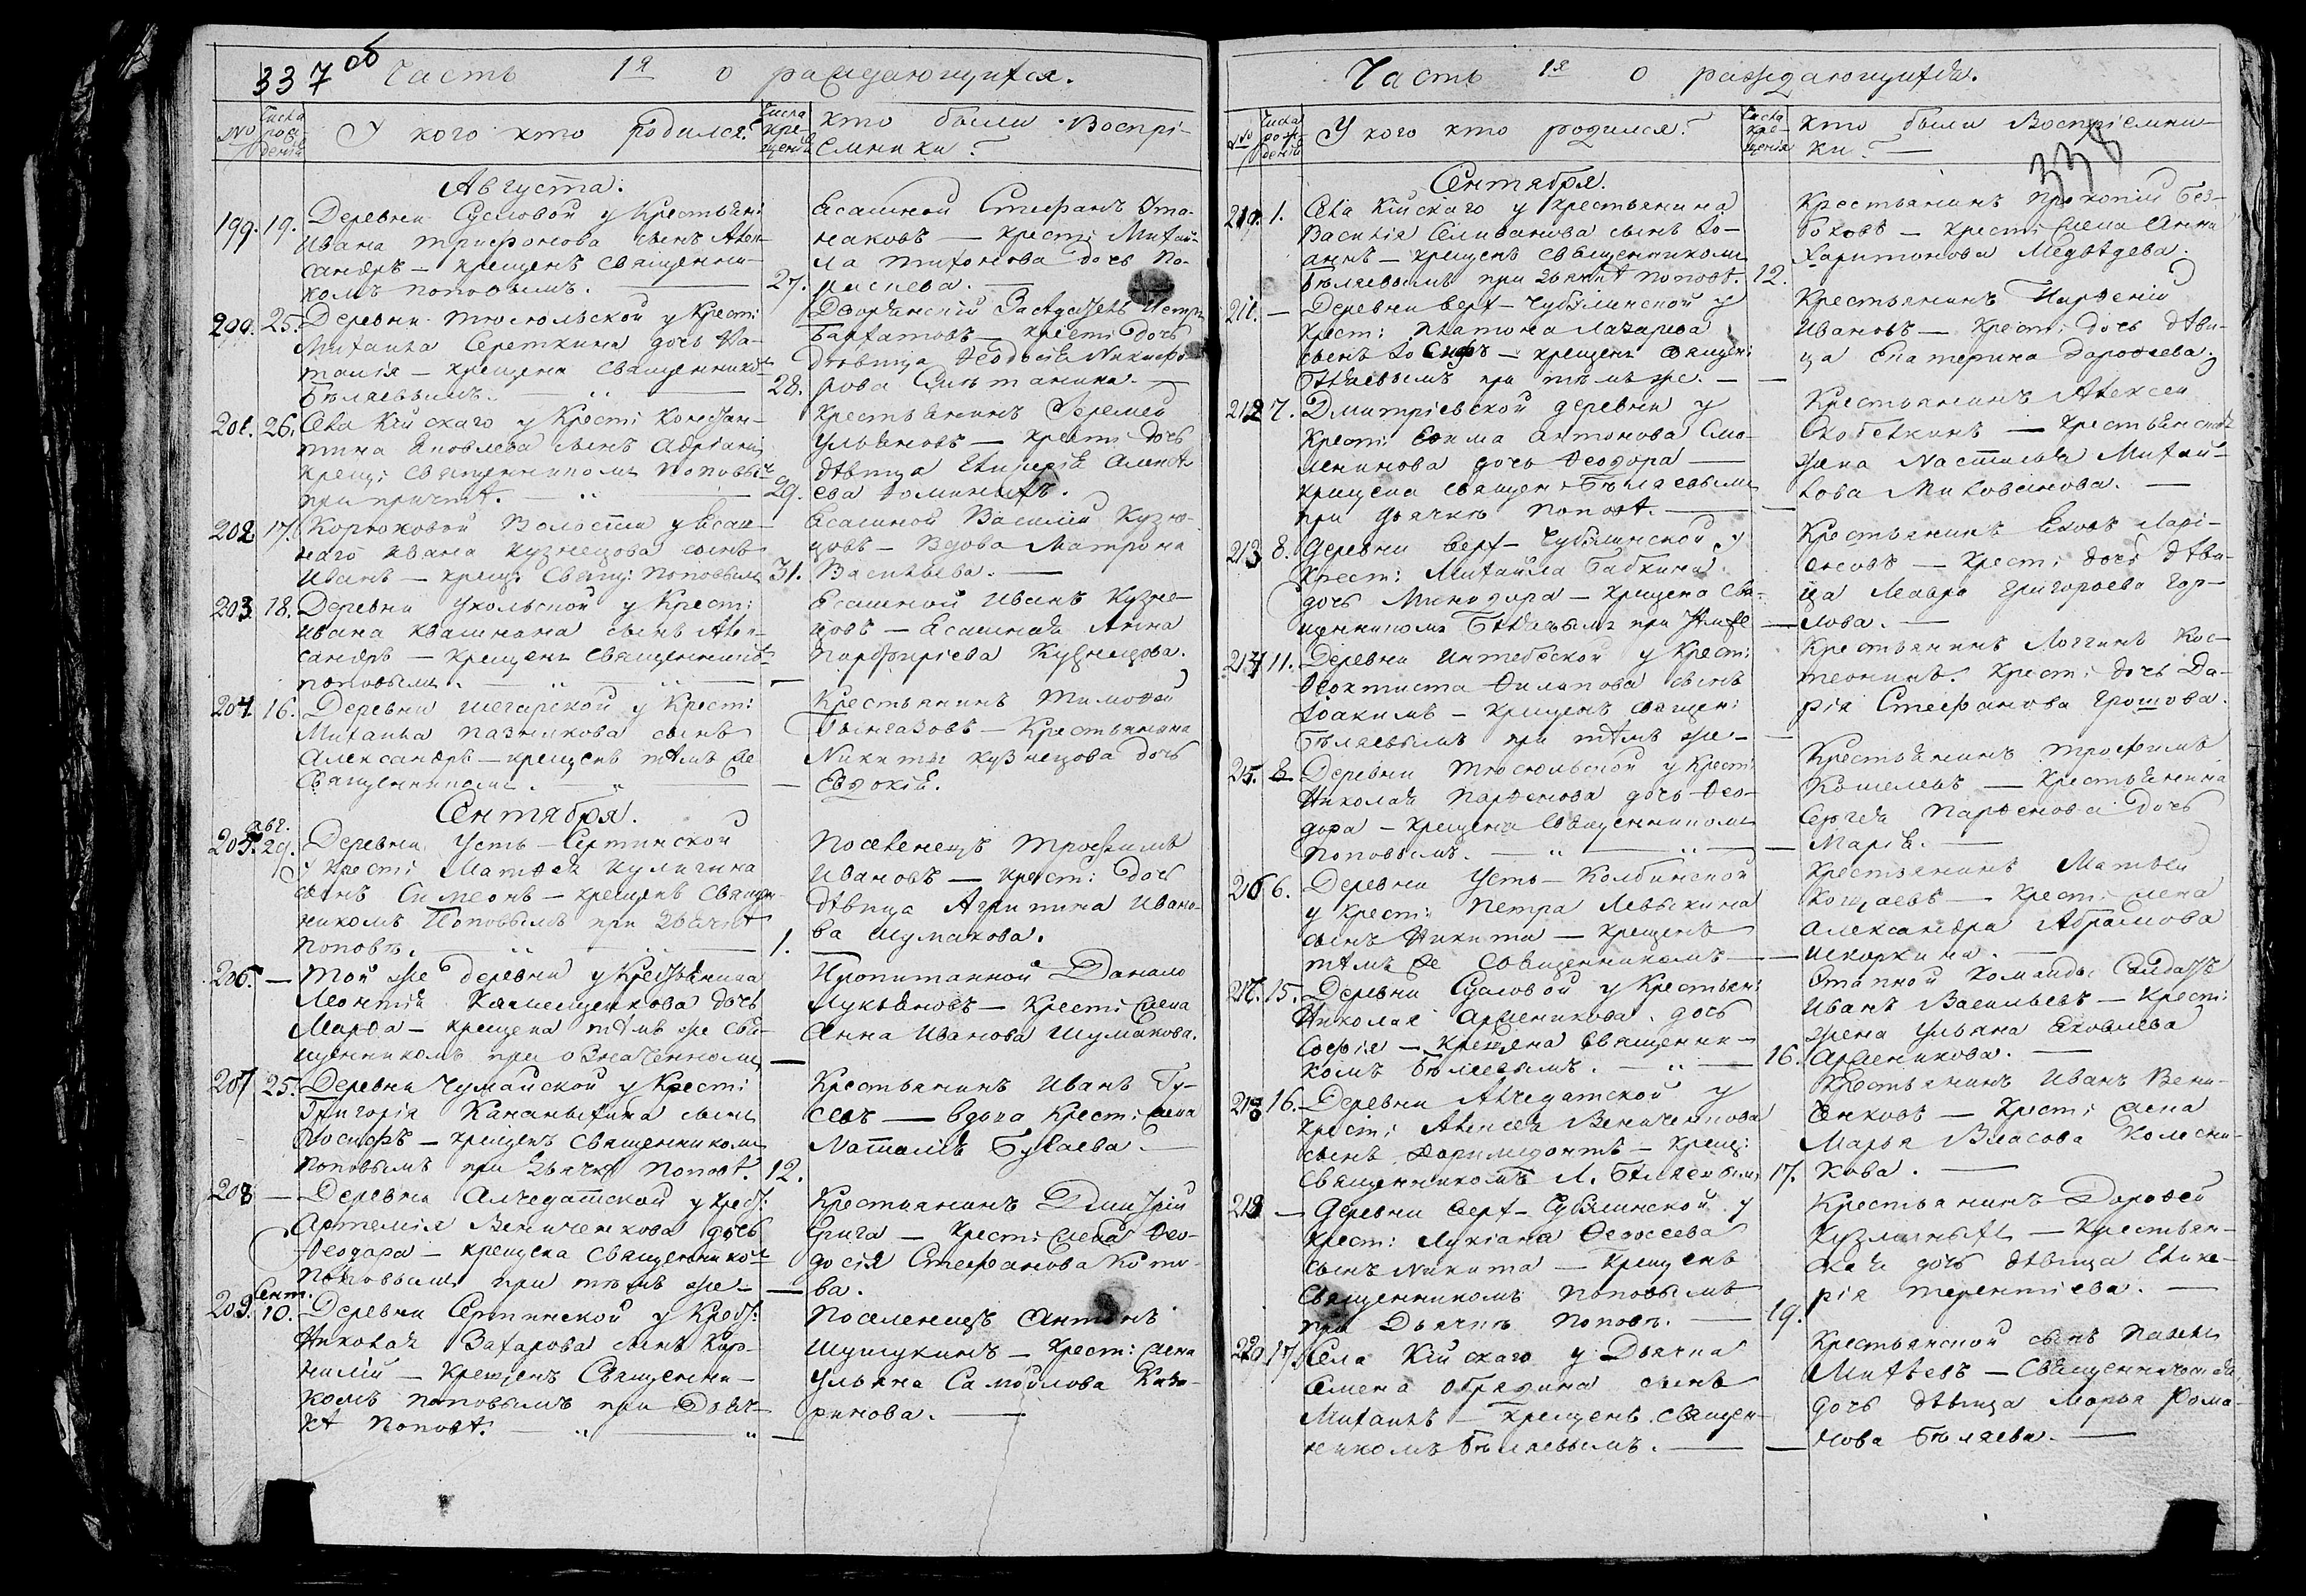 337 об
Часть 1я о раждающихся.
№
Числа рождения
У кого кто родился?
Числа крещения
Кто были Воспрі-
емники?
Августа.
199. 19. Деревни Сусловой у Крестьяни:
Ивана Трифонова сынъ Алек-
сандръ — крещенъ Священни-
комъ Поповымъ. — 27.
Ясашной Стефанъ
наковъ — крест: Михай-
ла Тихонова дочь
200. 25. Деревни Тюсюльской у Крест:
Михаила Сереткина дочь На-
талія — крещена Священнико
Бѣляевымъ. — 28.
Дворянскій Засѣдатель Петръ
крест: дочь
дѣвица Ѳеодосія Никифо-
рова
201. 26. Села Кійскаго у Крест: Констан-
тина Яковлева сынъ Адріанъ
крещ: Священникомъ Поповым
при причтѣ. — 29.
Крестьянинъ Іеремей
Ульяновъ — крест: дочь
дѣвица Гликерія Алексѣ
ева Фоминыхъ.
202 17. Корюковой Волости у Ясаш-
наго Ивана Кузнецова сынъ
Иванъ — крещ: Свящ: Поповым 31.
Ясашной Василій Кузне-
цовъ — Вдова Матрона
Васильева. —
203. 18. Деревни Укольской у Крест:
Ивана Квашнина сынъ Алек-
сандръ — крещенъ Священнико
Поповымъ. —
Ясашной Иванъ Кузне-
цовъ — Ясашная Анна
Парфиріева Кузнецова.
204. 16. Деревни Шегарской у Крест:
Михаила Пазникова сынъ
Александръ — крещенъ тѣмъ же
Священникомъ. —
Крестьянинъ Тимоѳей
Крестьянина
Никиты Кузнецова дочь
Евдокія.
Сентября.
205. авг. 29. Деревни Усть-Сертинской
у Крест: Матѳея Кулигина
сынъ Симеонъ — крещенъ Священ
никомъ Поповымъ при дьячкѣ
Поповѣ. — 1.
Поселенецъ Трофимъ
Ивановъ — крест: дочь
дѣвица Агрипина Ивано-
ва Шумакова.
206. — Той же деревни у Крестьянина
Леонтія дочь
Марѳа — крещена тѣмъ же Свя-
щенникомъ при означенномъ —
Пропитанной Данило
Лукьяновъ — Крест: жена
Анна Иванова Шумакова.
207 25. Деревни Чумайской у Крест:
Григорія Кананыхина сынъ
Іосифъ — крещенъ Священникомъ
Поповымъ при дьячкѣ Поповѣ. 12.
Крестьянинъ Иванъ Гу-
севъ — вдова Крест: жена
Наталія Букаева. —
208 — Деревни Алчедатской у Крест:
Артемія Вениченкова дочь
Ѳеодора — крещена Священнико
Поповымъ при томъ же —
Крестьянинъ Дмитрій
Ерига — Крест: жена Ѳео-
досія Стефанова Кото-
ва.
209. Сент. 10. Деревни Сертинской у Крест:
Николая Захарова сынъ Кор-
нилій — крещенъ Священни-
комъ Поповымъ при Дьяч-
кѣ Поповѣ. —
Поселенецъ Антонъ
Шушукинъ — Крест: жена
Ульяна Самойлова Каза-
ринова. —
Часть 1я о раждающихся.
338
№
Числа рожденія
У кого кто родился?
Числа крещенія
Кто были Воспріемни-
ки? —
Сентября.
210. 1. Села Кійскаго у Крестьянина
Василія Селиванова сынъ Іо-
аннъ — крещенъ Священникомъ
Бѣляевымъ при дьячкѣ Поповѣ. 12.
Крестьянинъ Прокопій Без-
боковъ — крест: жена Анна
Харитонова Медвѣдева.
211. — Деревни Верх-Чубулинской у
Крест: Платона Лазарева
сынъ Іосифъ — крещенъ Священ:
Бѣляевымъ при томъ же. — —
Крестьянинъ Парѳеній
Ивановъ — крест: дочь дѣви-
ца Екатерина Дороѳеева.
212 7. Дмитріевской деревни у
Крест: Екима Антонова Смо-
ленинова дочь Ѳеодора —
крещена Священ: Бѣляевымъ
при дьячкѣ Поповѣ. —
Крестьянинъ Алексей
Скобелкинъ — Крестьянская
жена Настасья Михай-
лова Милованова. —
213 8. Деревни Верх-Чубулинской у
Крест: Михайла Бабкина
дочь Минодора — крещена Свя-
щенникомъ Бѣляевымъ при —
Крестьянинъ Яковъ Ларі-
оновъ — Крест: дочь дѣви-
ца Мавра Григорьева Гор-
лова. —
214 11. Деревни Интебеской у Крест:
Ѳеоктиста Филипова сынъ
Іоакимъ — крещенъ Священ:
Бѣляевымъ при тѣмъ же —
Крестьянинъ Логгинъ Кос-
теонинъ. Крест: дочь Да-
рія Стефанова Грошова.
215. 8 Деревни Тюсюльской у Крест:
Николая Парѳенова дочь Ѳео-
дора — крещена Священникомъ
Поповымъ. —
Крестьянинъ Трофимъ
Кошелевъ — Крестьянина
Сергея Парѳенова дочь
Марія. —
216 6. Деревни Усть-Колбинской
у Крест: Петра Левыкина
сынъ Никита — крещенъ
тѣмъ же Священникомъ —
Крестьянинъ Матвѣй
Кощаевъ — Крест: жена
Александра Абрамова
Шкоркина. —
217. 15. Деревни Сусловой у Крестьян:
Николая Оршеникова дочь
Софія — крещена Священни-
комъ Бѣляевымъ. — 16.
Этапной Команды Салдатъ
Иванъ Васильевъ — Крест:
жена Ульяна Яковлева
Оршеникова. —
218 16. Деревни Алчедатской у
Крест: Алексея Вениченкова
сынъ Доримедонтъ — крещ:
Священникомъ Л. Бѣляевымъ 17.
Крестьянинъ Иванъ Вени-
ченковъ — Крест: жена
Марья Власова Колесни-
кова. —
219 — Деревни Верх-Чубулинской у
Крест: Лукіана Ѳедосеева
сынъ Никита — крещенъ
Священникомъ Поповымъ
при Дьячкѣ Поповѣ. — 19.
Крестьянинъ Дороѳей
Кузминыхъ — Крестьян-
ская дочь дѣвица Глике-
рія Терентіева. —
220 17. Села Кійскаго у Дьячка
Семена Обрядина сынъ
Михаилъ — крещенъ Священ-
никомъ Бѣляевымъ. — —
Крестьянской сынъ Павелъ
Митьевъ — Священническая
дочь дѣвица Марья Рома-
нова Бѣляева. —